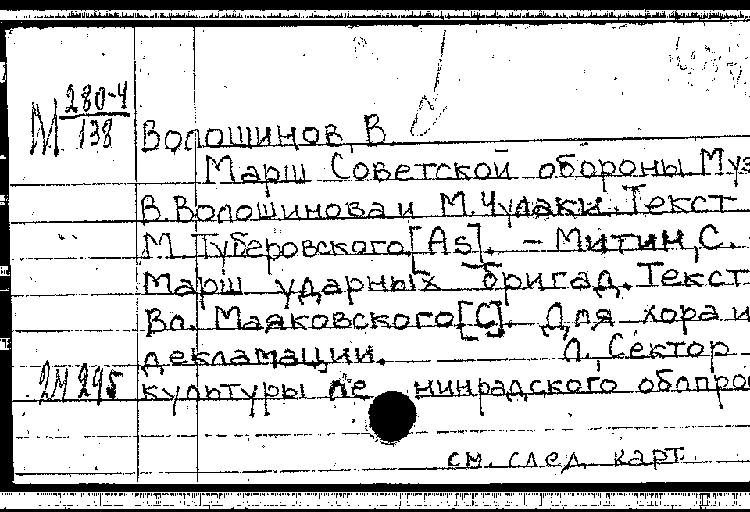 М 280-4/138
Волошинов, В.
Марш Советской обороны. Муз
В. Волошинова и М. Чулаки. Текст
М. Туберовского [As]. – Митин, С.
Марш ударных бригад. Текст
Вл. Маяковского [C]. Для хора и
декламации. Л., Сектор
2М 295
культуры ленинрадского облпро
см. след. карт.